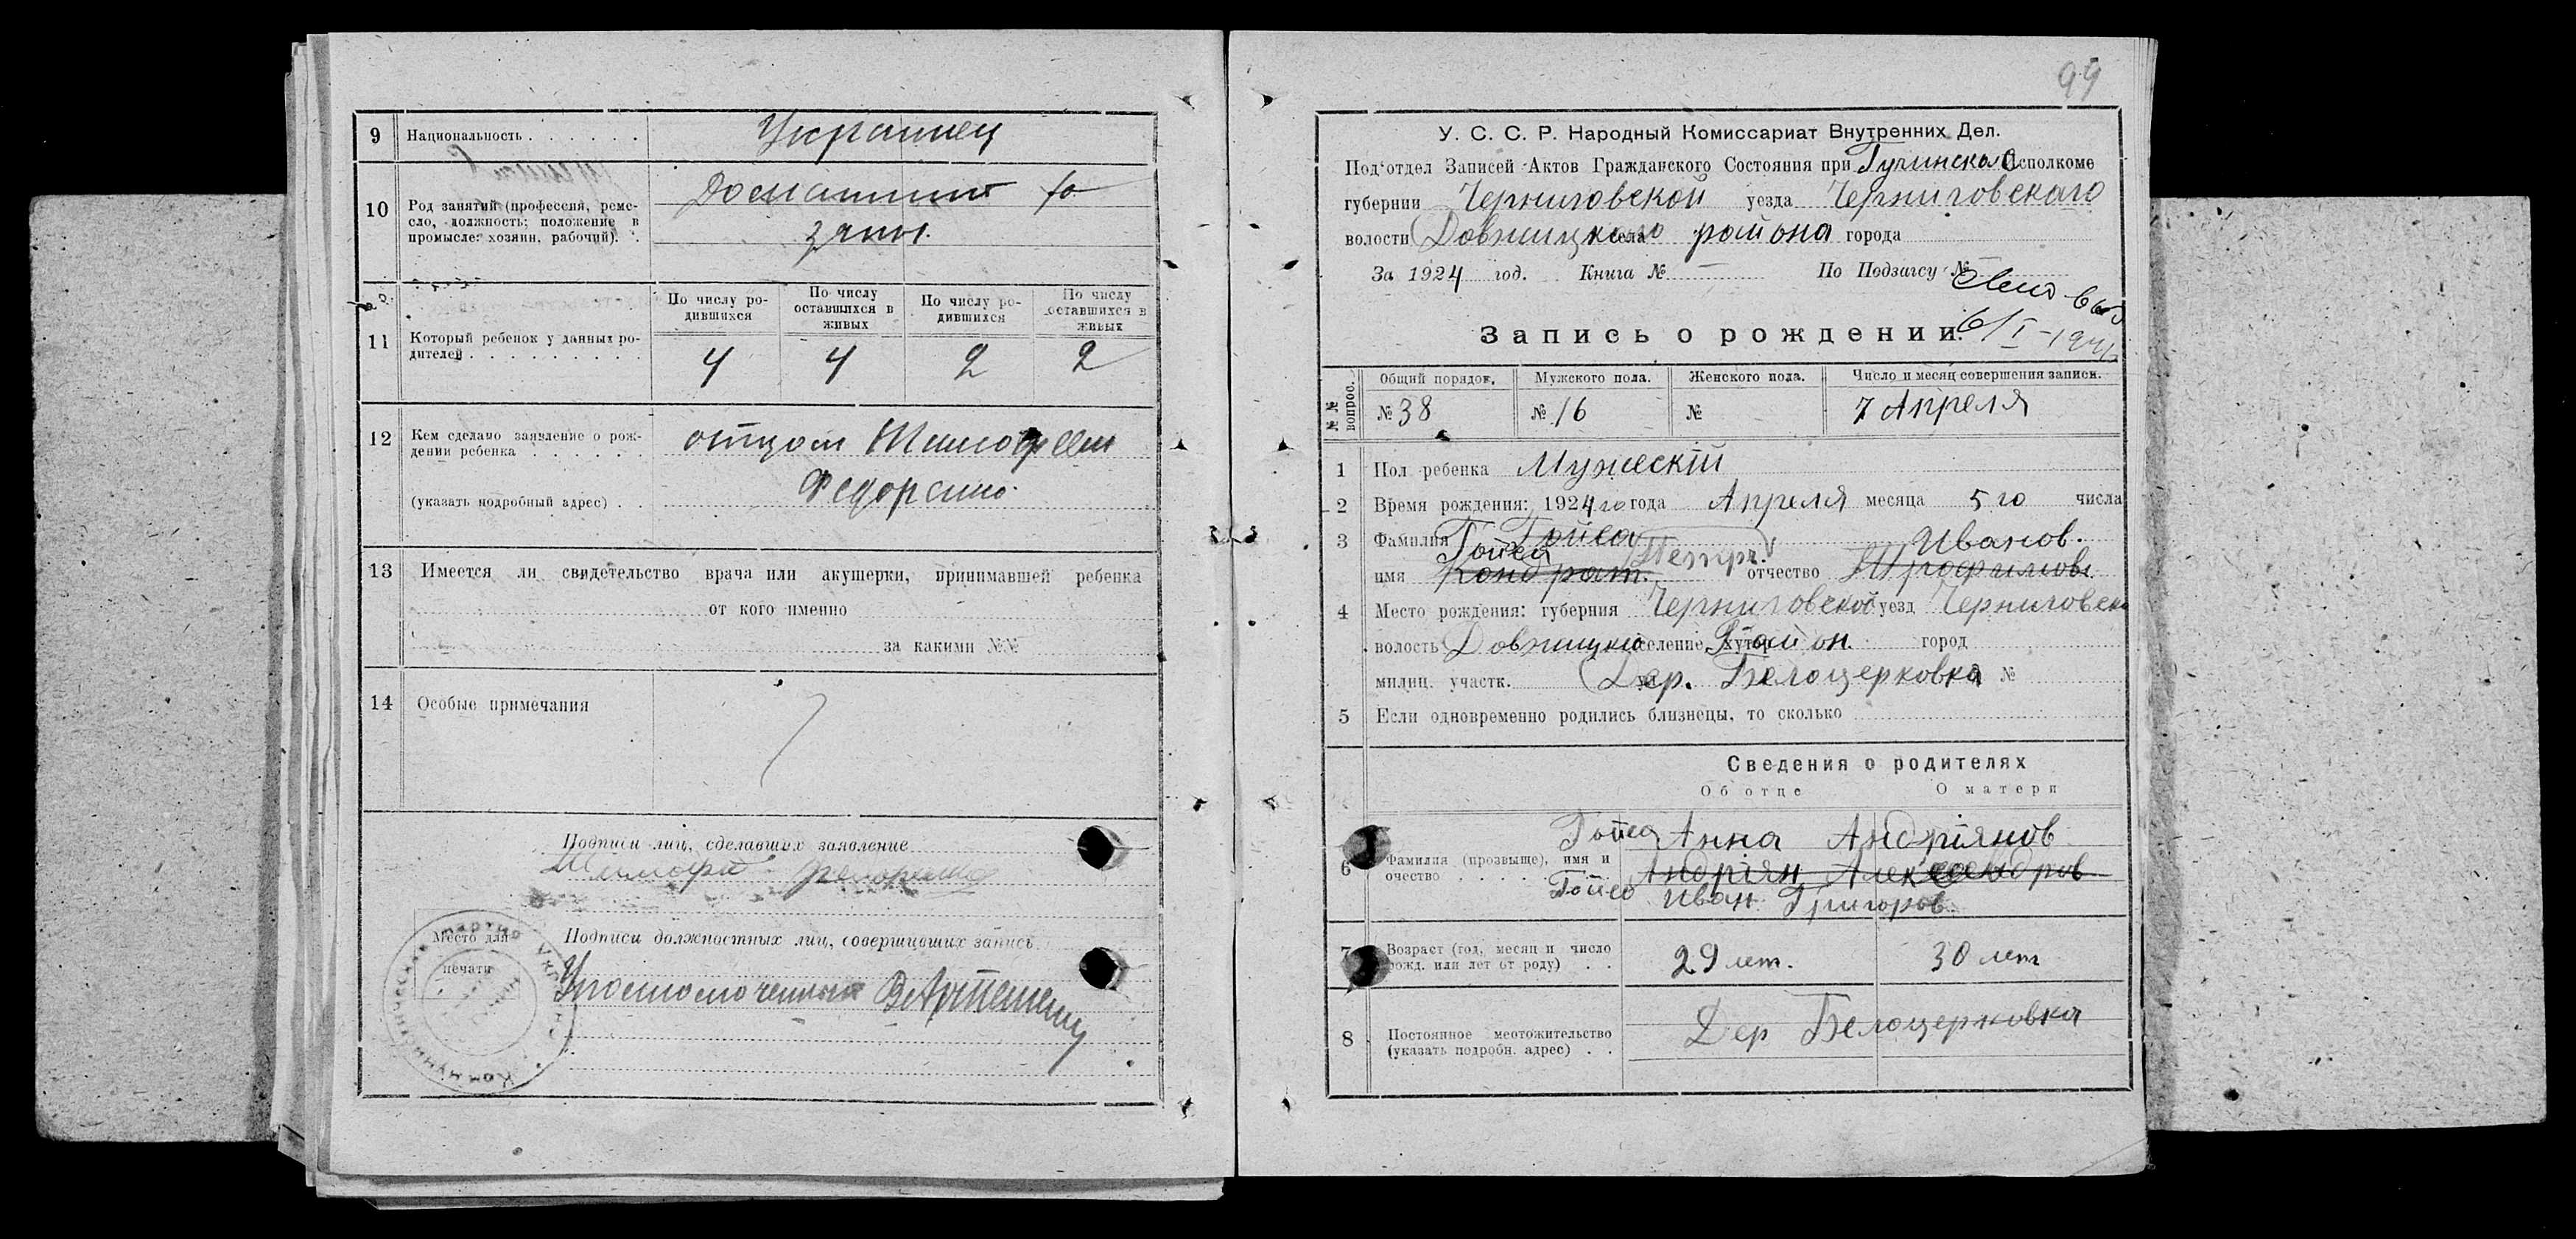 9 Национальность . . . . . . Украинец
10 Род занятий (профессия, реме-
сло, должность; положение в
промысле: хозяин, рабочий). .
Домашнит хо
зяин.
11 Который ребенок у данных ро-
дителей . . . . . . . . .
По числу ро-
дившихся
По числу
оставшихся в
живых
По числу ро-
дившихся
По числу
оставшихся в
живых
4 4 2 2
12 Кем сделано заявление о рож-
дении ребенка . . . . . .
(указать подробный адрес) . .
отцом Тимофеем
Федоренко.
13 Имеется ли свидетельство врача или акушерки, принимавшей ребенка
от кого именно
за какими №№
14 Особые примечания
Подписи лиц, сделавших заявление
Тимофей Федоренко
Место для
печати
Подписи должностных лиц, совершивших запись
Уполномоченный
99
У. С. С. Р. Народный Комиссариат Внутренних Дел.
Под'отдел Записей Актов Гражданского Состояния при Гучинском Исполкоме
губернии Черниговской уезда Черниговскаго
волости Довжицкого села района города
За 1924 год. Книга № — По Подзагсу №
6/I-194
Запись о рождении.
№№ вопрос.
Общий порядок. Мужского пола. Женского пола. Число и месяц совершения записи.
№ 38 № 16 № 7 Апреля
1 Пол ребенка Мужескій
2 Время рождения: 1924 го года Апреля месяца 5 го числа
3 Фамилия Гойса Иванов.
Гойса Петр.
имя Кондрат. отчество Трофимов.
4 Место рождения: губерния Черниговской уезд Черниговск
волость Довжицкий селение хутор Район. город
милиц. участк. Дер. Белоцерковка №
5 Если одновременно родились близнецы, то сколько
Сведения о родителях
Об отце О матери
6 Фамилия (прозвыще), имя и
очество . . . . . . .
Гойса Анна Андріянов
Андріян Александров
Гойса Иван Григоров.
7 Возраст (год, месяц и число
рожд. или лет от роду) . .
29 лет. 30 лет
8 Постоянное местожительство
(указать подробн. адрес) . .
Дер Белоцерковка